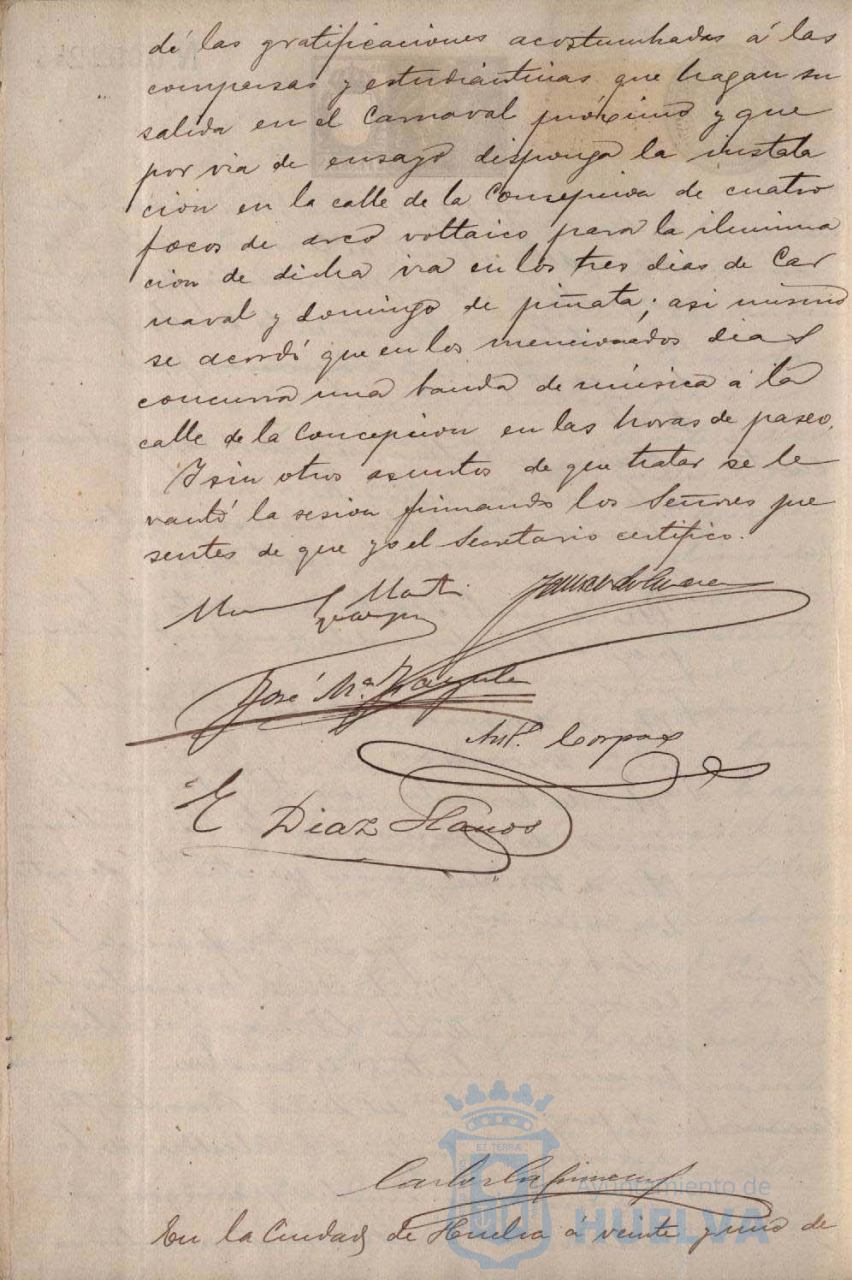 dé las gratificaciones acostumbradas á las
compersas y estudiantinas que hagan su
salida en el Carnaval próximo y que
por via de ensayo disponga la instala
cion en la calle de la Concepcion de cuatro
focos de arco voltaico para la ilumina
cion de dicha via en los tres dias de Car
naval y domingo de piñata; asi mismo
se acordó que en los mencionados dias
concurra una banda de música á la
calle de la Concepcion en las horas de paseo.
Y sin otros asuntos de que tratar se le
vantó la sesion firmando los Señores pre
sentes de que yo el Secretario certifico.
José Mª
Antº. Corpas
E Diaz Llanos
ET TERRÆ
Ayuntamiento de
HUELVA
En la Ciudad de Huelva á veinte y uno de